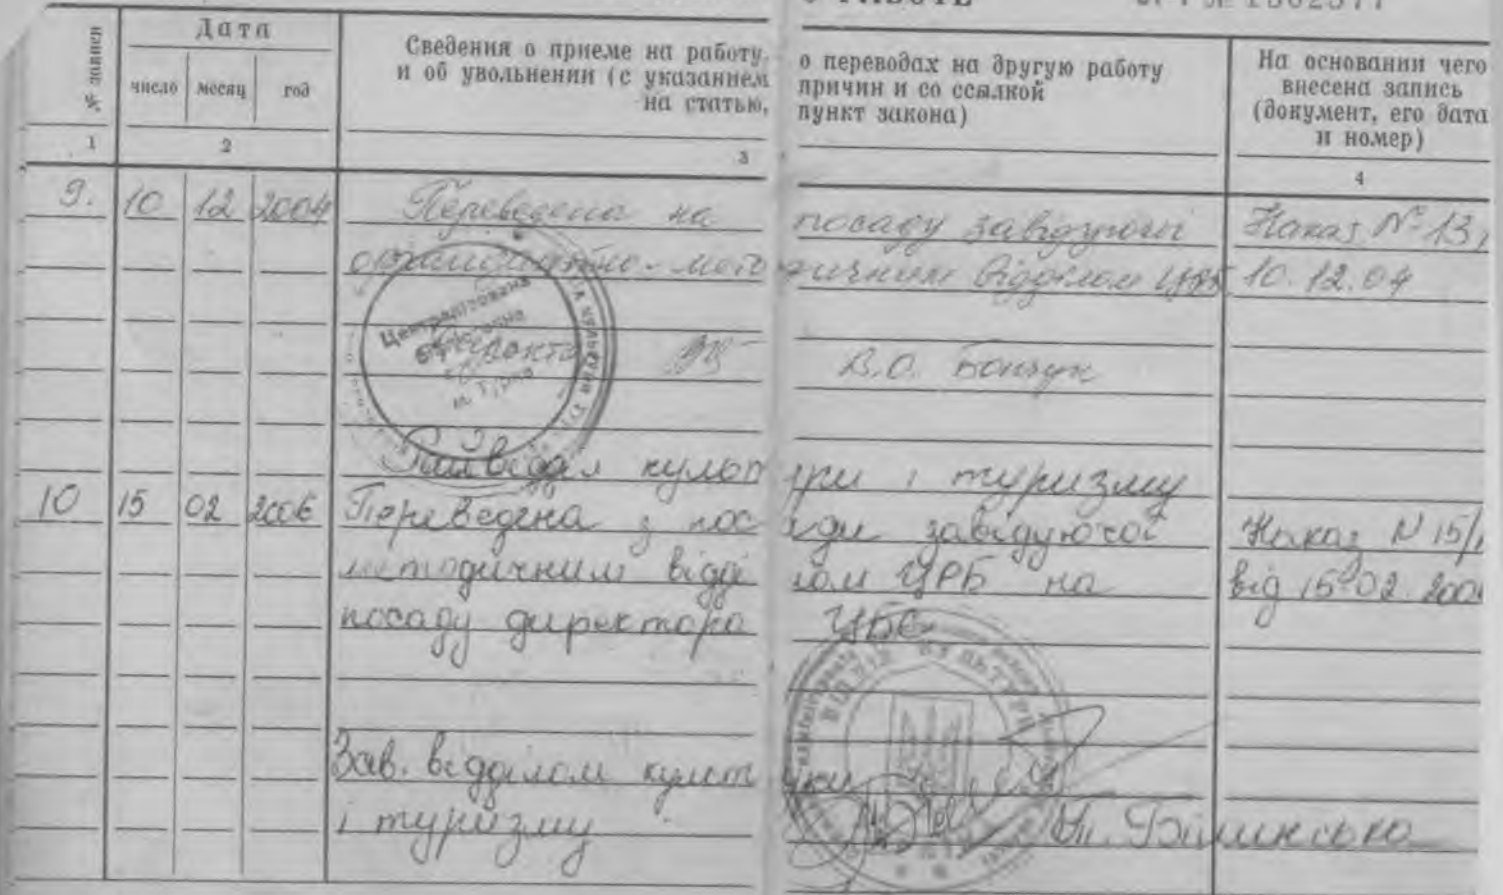 № записи
Дата
число месяц год
Сведения о приеме на работу, о переводах на другую работу
и об увольнении (с указанием причин и со ссылкой
на статью, пункт закона)
На основании чего
внесена запись
(документ, его дата
и номер)
1 2 3 4
9. 10 12 2004 Переведена на посаду завідуючої Наказ № 13
методичним відділом ЦРБ 10.12.04
Централізована
м. Турка
Директор В.О.
Відділ культури і туризму
10 15 02 2006 Переведена з посади завідуючої Наказ N 15/
методичним відділом ЦРБ на від 15.02.200
посаду директора ЦБС
ВІДДІЛ КУЛЬТУРИ
Зав. відділом культури
і туризму